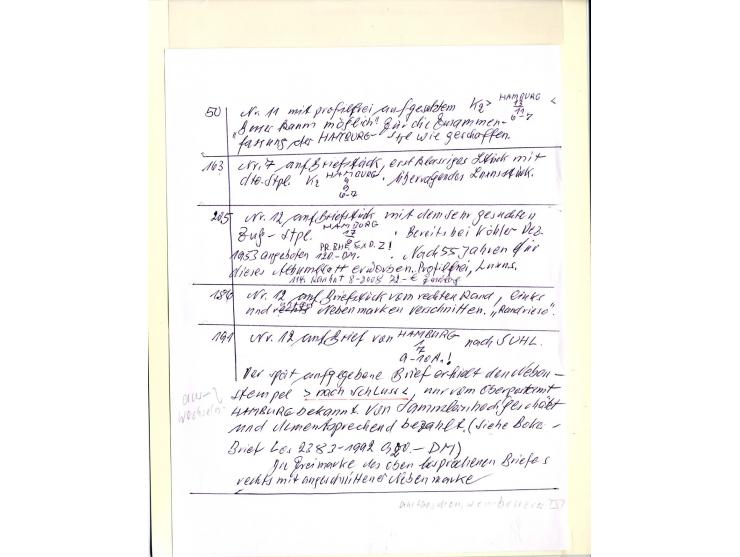 50 Nr. 11 mit profilfrei aufgesetztem K2 > HAMBURG <
12
11
6-7
"Besser kaum möglich" Für die Zusammen-
fassung der HAMBURG- wie geschaffen.
163 Nr. 7 auf Briefstück, erstklassiges Stück mit
Stpl. K2 HAMBURG . Überragendes Luxusstück.
9
6-7
205 Nr. 12 auf Briefstück mit dem sehr gesuchten
Zug-Stpl. HAMBURG . Bereits bei Köhler Dez.
17
1953 angeboten 120.-DM. Nach 55 Jahren für
dieses Albumblatt erworben. Profilfrei, Luxus.
8-2008 72-€
186 Nr. 12 auf Briefstück vom rechten Rand, links
und Nebenmarken verschnitten. "Randriese".
191 Nr. 12 auf Brief von HAMBURG nach SUHL.
1
7
9-10 A.!
Der spät aufgegebene Brief erhielt den Neben-
stempel > nach Schluss <, nur vom Oberpostamt
HAMBURG bekannt. Von Sammlern hoch geschätzt
und dementsprechend bezahlt. (siehe
Brief Los 2383-1992 -DM)
Die Freimarke des oben besprochenen Briefes
rechts mit angeschnittener Nebenmarke
aus-
wechseln